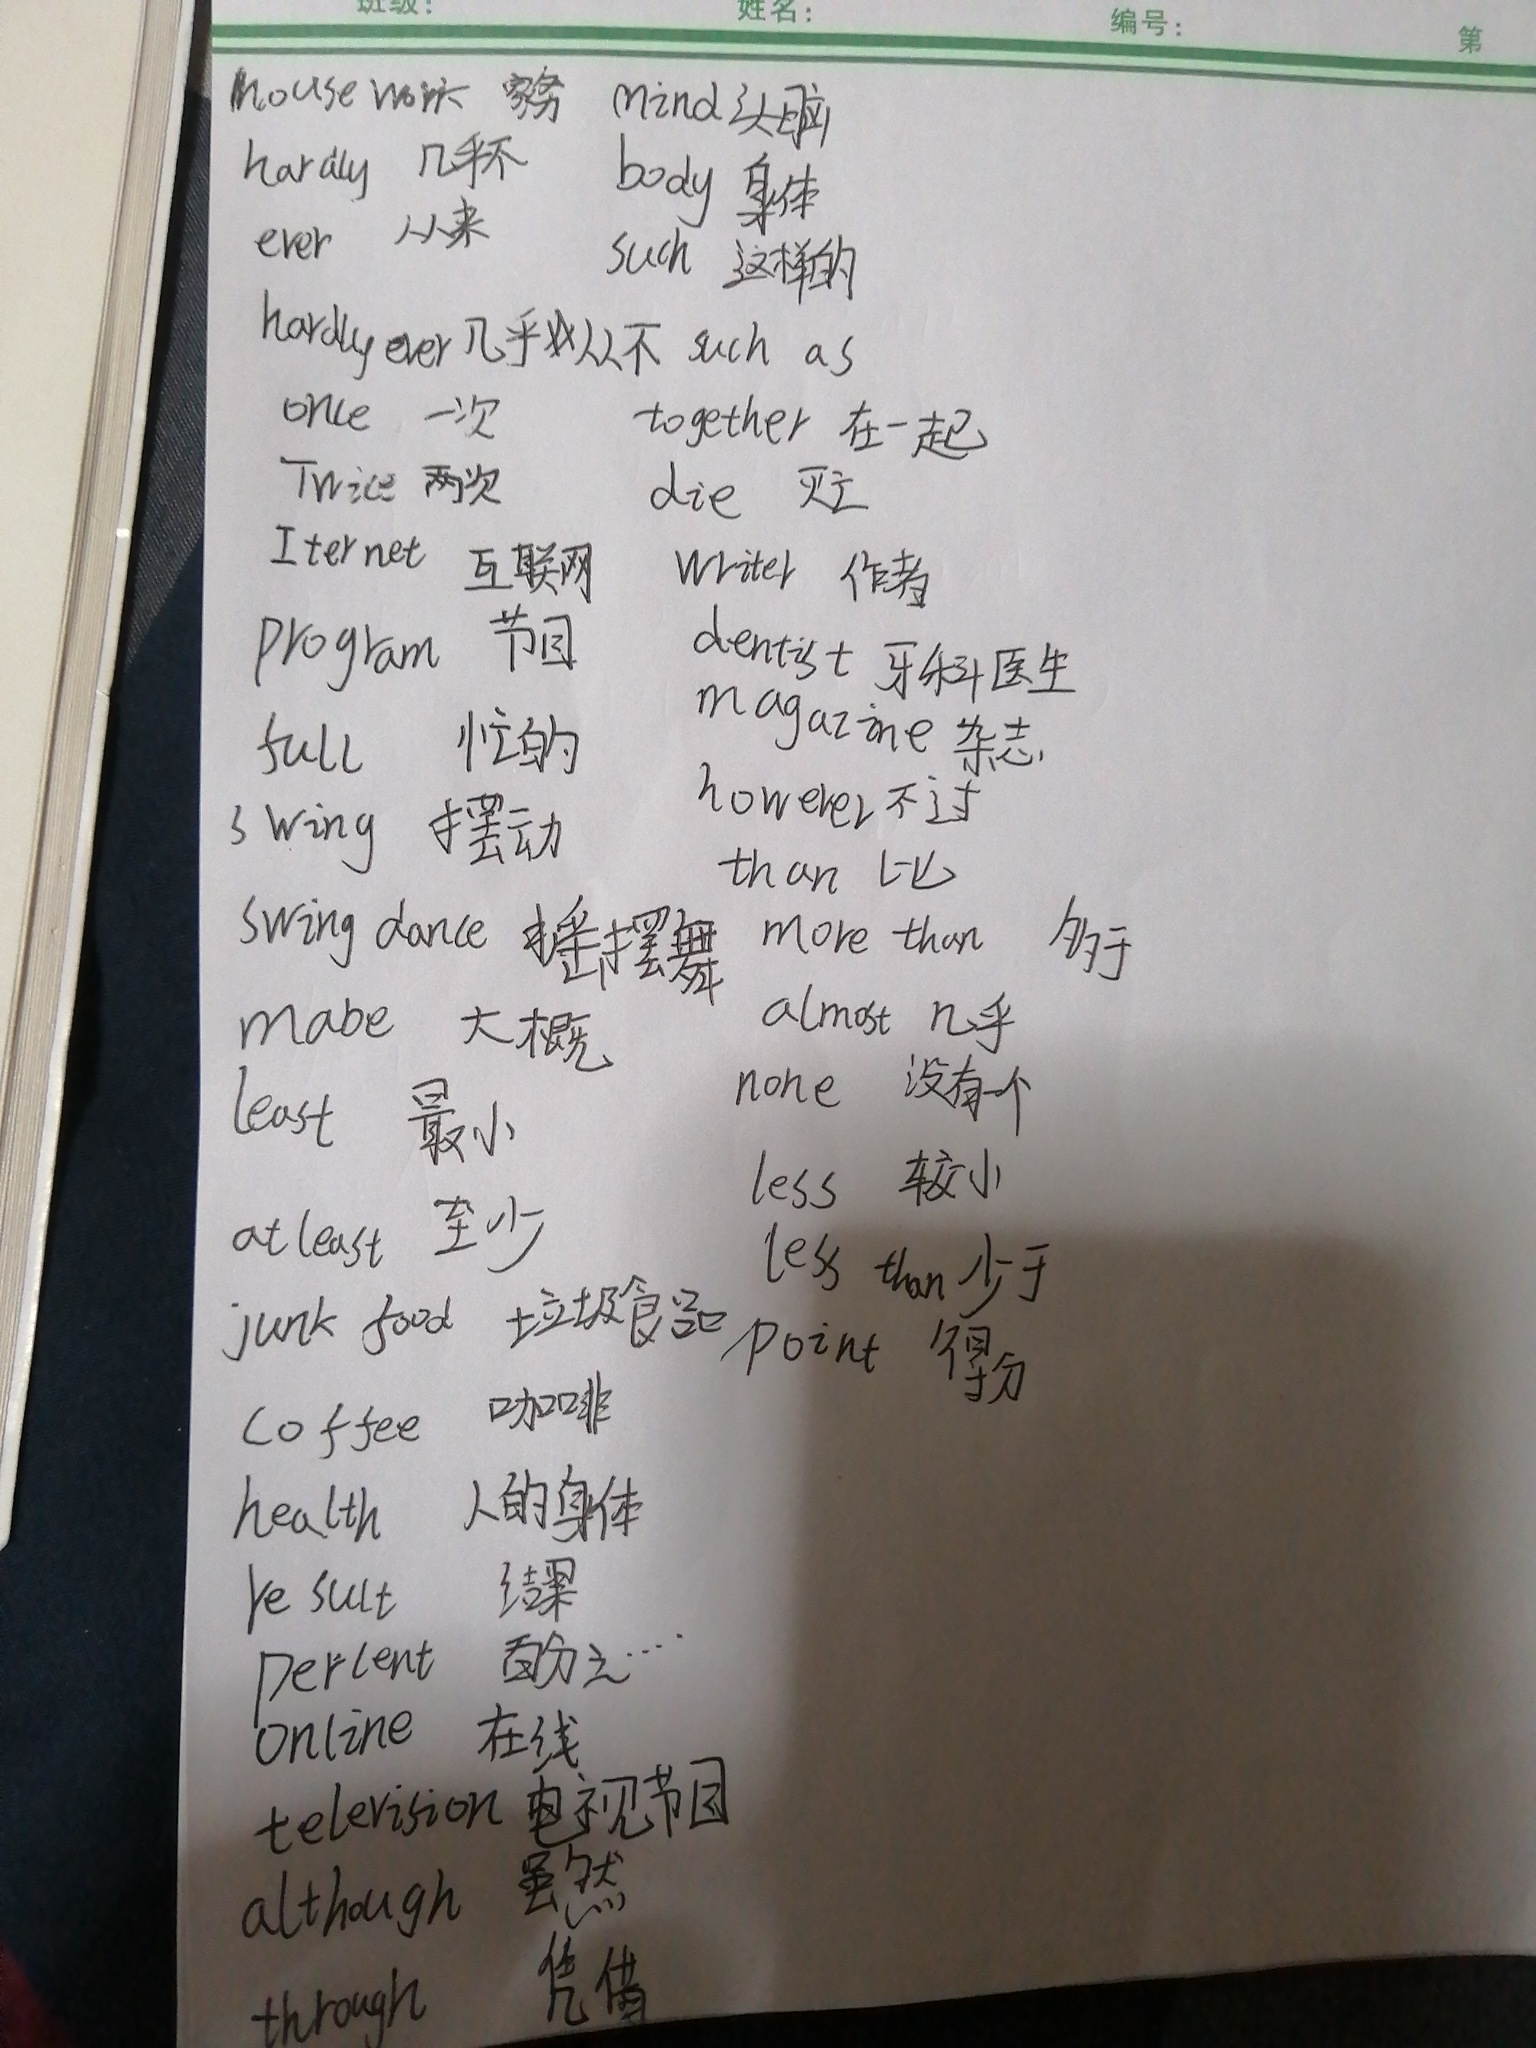 班级: 姓名: 编号: 第
housework 家务
hardly 几乎不
ever 从来
hardly ever 几乎从不
once 一次
Twice 两次
Iternet 互联网
program 节目
full 忙的
swing 摆动
swing dance 摇摆舞
mabe 大概
least 最小
at least 至少
junk food 垃圾食品
coffee 咖啡
health 人的身体
result 结果
percent 百分之……
online 在线
television 电视节目
although 虽然
through 凭借
mind 头脑
body 身体
such 这样的
such as
together 在一起
die 灭亡
writer 作者
dentist 牙科医生
magazine 杂志
however 不过
than 比
more than 多于
almost 几乎
none 没有一个
less 较小
less than 少于
point 得分